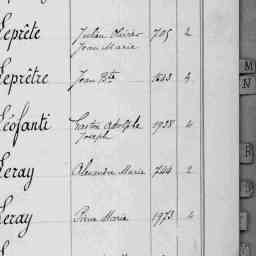 Leprête Julien Olivier 705 2
Jean Marie
Leprêtre Jean Bte 1533 4
Léofanti Gaston Adolphe 1938 4
Joseph
Leray Alexandre Marie 744 2
Leray Pierre Marie 1973 4
M
N